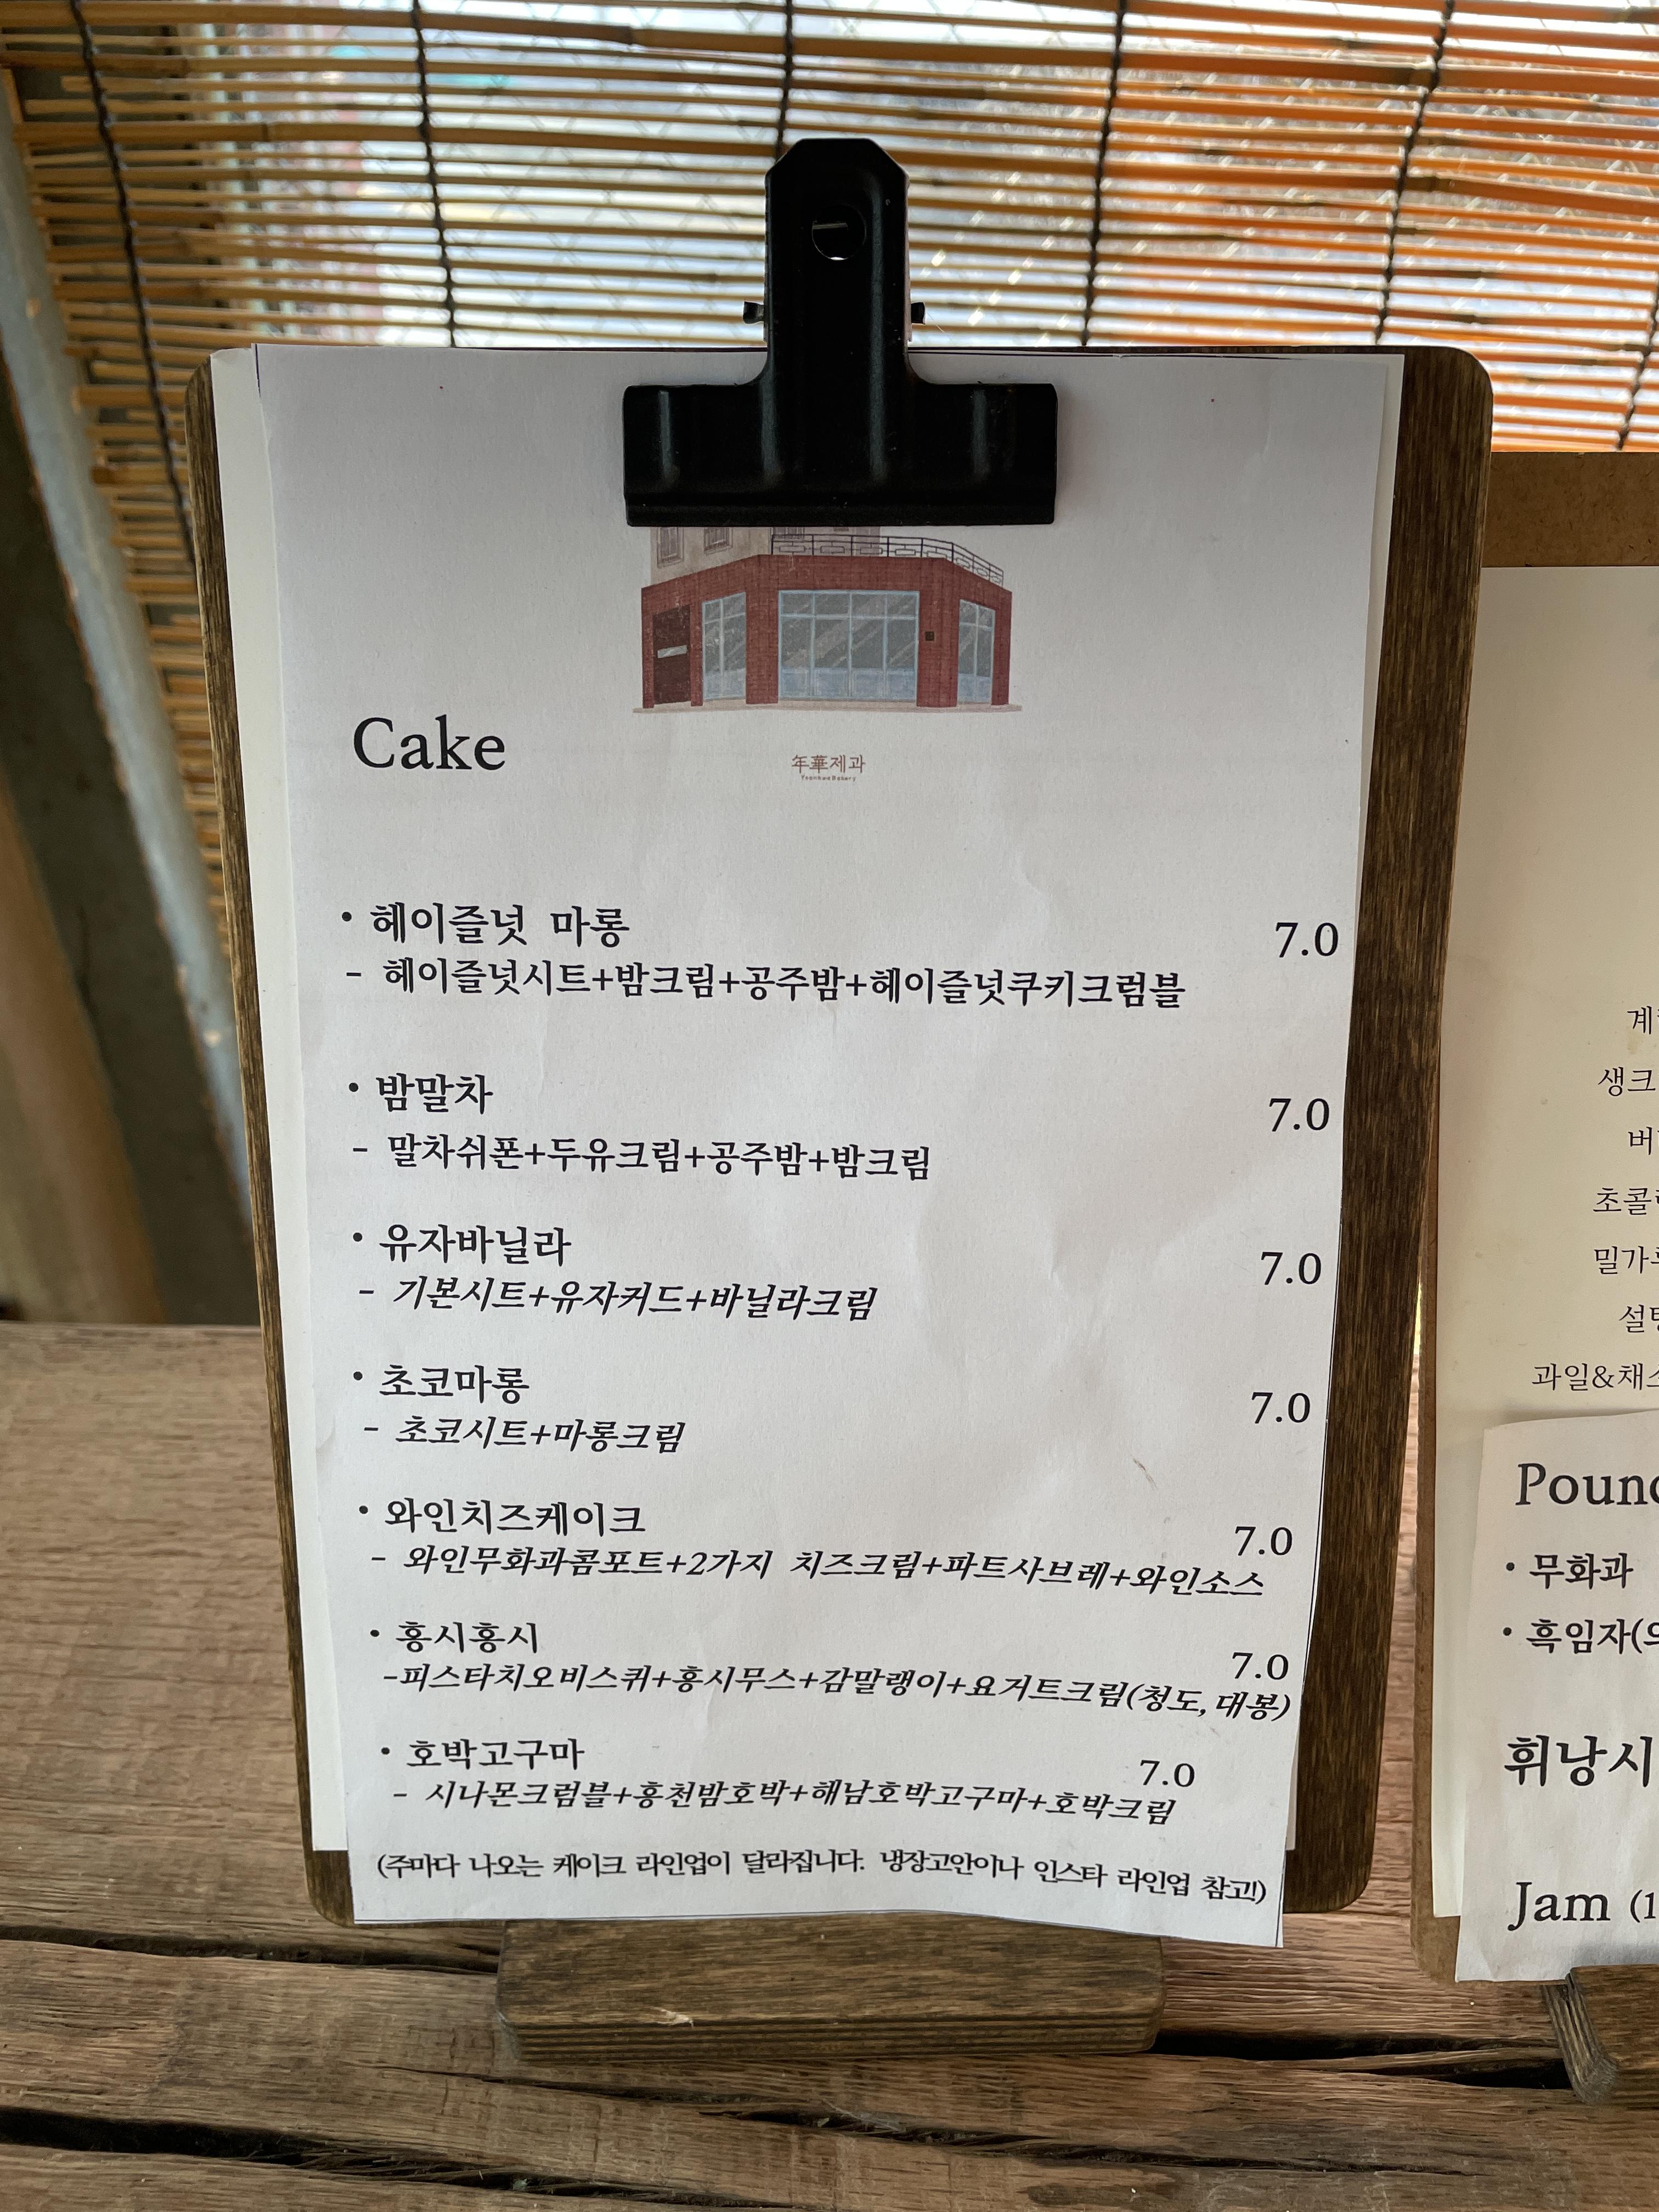 Cake
年華제과
Yeonhwa Bakery
• 헤이즐넛 마롱 7.0
- 헤이즐넛시트+밤크림+공주밤+헤이즐넛쿠키크럼블
• 밤말차 7.0
- 말차쉬폰+두유크림+공주밤+밤크림
• 유자바닐라 7.0
- 기본시트+유자커드+바닐라크림
• 초코마롱 7.0
- 초코시트+마롱크림
• 와인치즈케이크 7.0
- 와인무화과콤포트+2가지 치즈크림+파트사브레+와인소스
• 홍시홍시 7.0
-피스타치오비스퀴+홍시무스+감말랭이+요거트크림(청도, 대봉)
• 호박고구마 7.0
- 시나몬크럼블+홍천밤호박+해남호박고구마+호박크림
(주마다 나오는 케이크 라인업이 달라집니다. 냉장고안이나 인스타 라인업 참고!)
계
생크
버
초콜
밀가
설
과일&채소
Poun
• 무화과
• 흑임자(
휘낭시
Jam (1